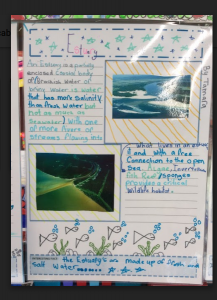 Estuary
An Estuary is a partially
enclosed coastal body
of brackish water is water
that has more salinity
than fresh water but
not as much as
Seawater) with one
of more rivers of
streams flowing into
By Tamara
What lives in an
and with a free
Connection to the open
Sea. Algae,
fish and sponges
provides a critical
wildlife habitat.
the Estuary is made up of fresh and
Salt Water